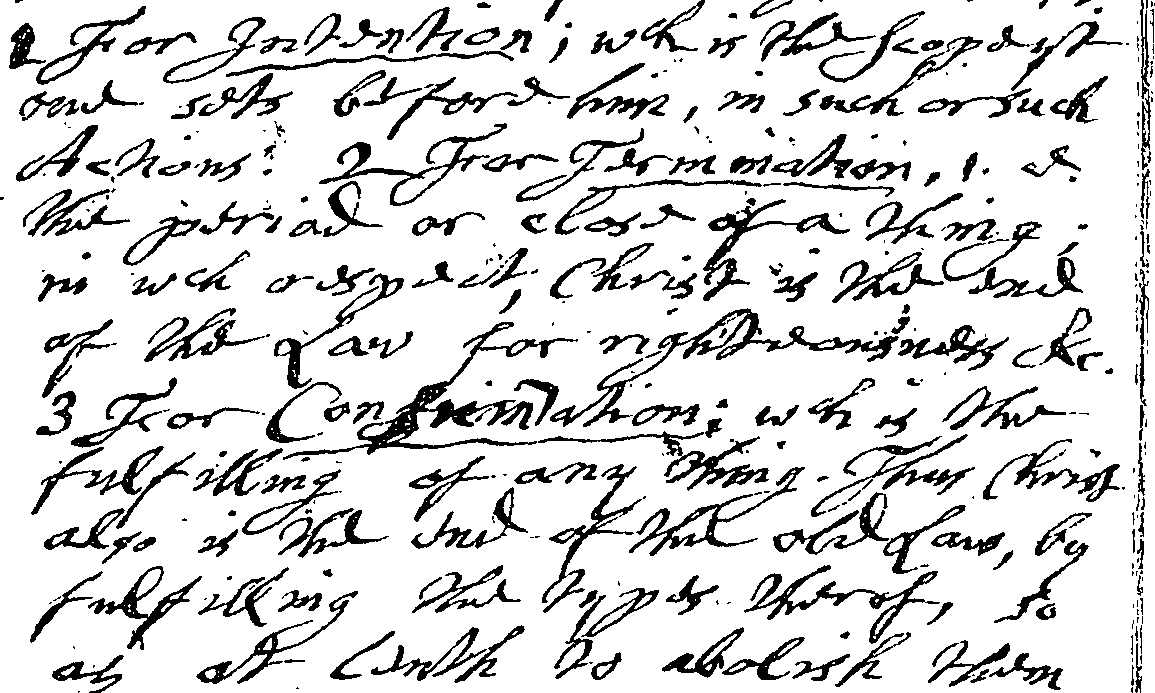 1 For Intention; wch is the scope yt
one sets before him, in such or such
Actions. 2 For Termination, i. e.
the period or close of a thing;
in wch respect, Christ is the end
of the Law for righteousness &c.
3 For Confirmation; wch is the
fulfilling of any thing. Thus Christ
also is the end of the old Law, by
fulfilling the types therof, so
as at lenth to abolish them